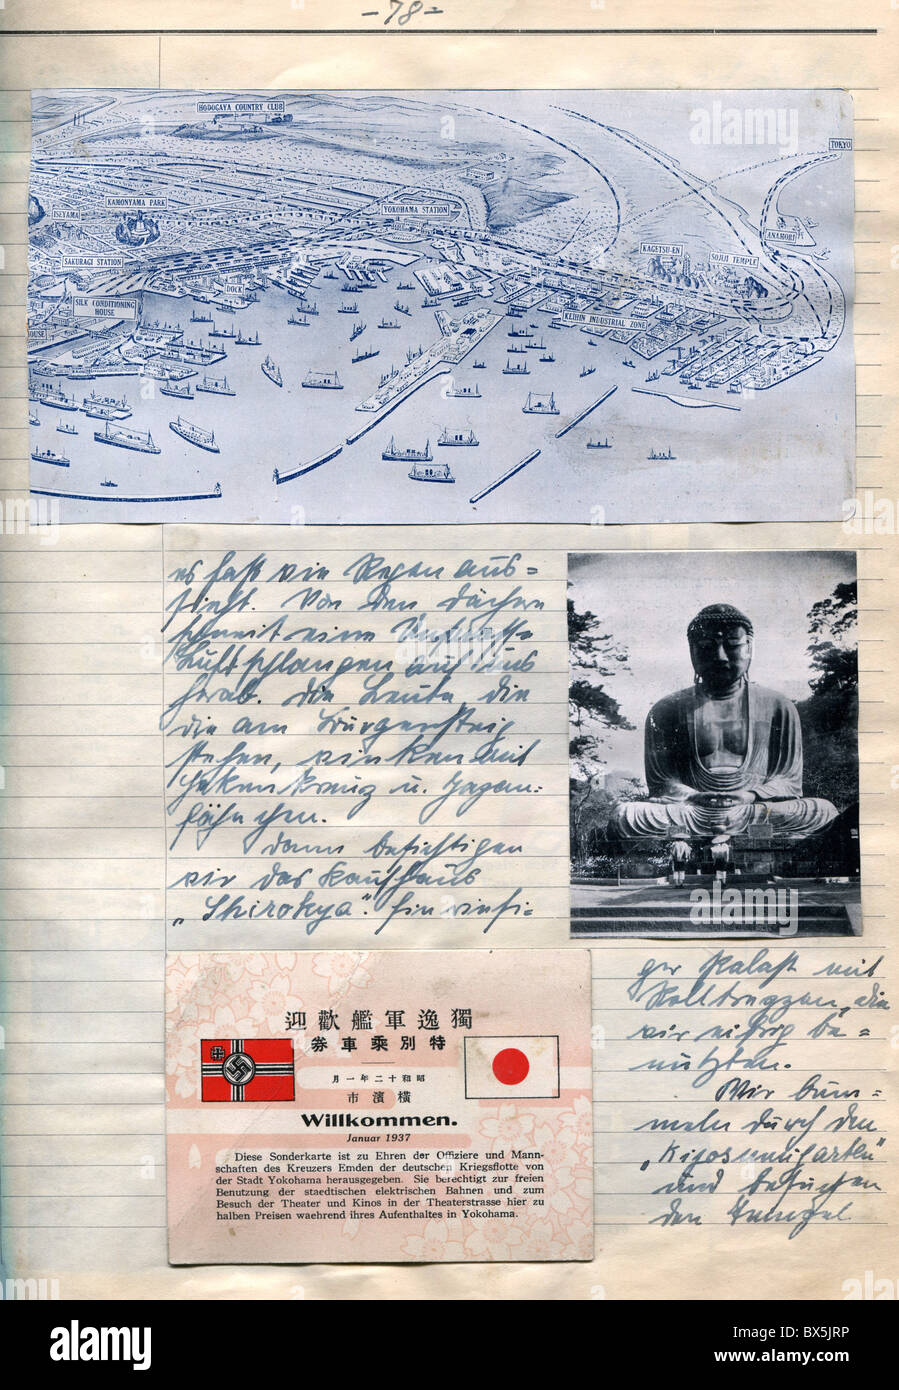 -78-
HODOGAYA COUNTRY CLUB
TOKYO
KAMONYAMA PARK
ISEYAMA
YOKOHAMA STATION
ANAMORI
KAGETSU-EN
SOJIJI TEMPLE
SAKURAGI STATION
DOCK
SILK CONDITIONING
HOUSE
KEIHIN INDUSTRIAL ZONE
HOUSE
es fast wie Regen aus=
sieht. Von den Dächern
schneit eine
Luftschlangen auf uns
herab. Die Leute die
die am Bürgersteig
stehen, winken mit
Hakenkreuz u. Japan-
fähnchen.
Dann besichtigen
wir das Kaufhaus
„Shirokya". Ein riesi-
ger Palast mit
Rolltreppen, die
wir eifrig be=
nutzten.
Wir bum=
meln durch den
und besuchen
den Tempel
迎歡艦軍逸獨
券車乘別特
月一年二十和昭
市濱橫
Willkommen.
Januar 1937
Diese Sonderkarte ist zu Ehren der Offiziere und Mann-
schaften des Kreuzers Emden der deutschen Kriegsflotte von
der Stadt Yokohama herausgegeben. Sie berechtigt zur freien
Benutzung der staedtischen elektrischen Bahnen und zum
Besuch der Theater und Kinos in der Theaterstrasse hier zu
halben Preisen waehrend ihres Aufenthaltes in Yokohama.
alamy
alamy
Image ID: BX5JRP
www.alamy.com